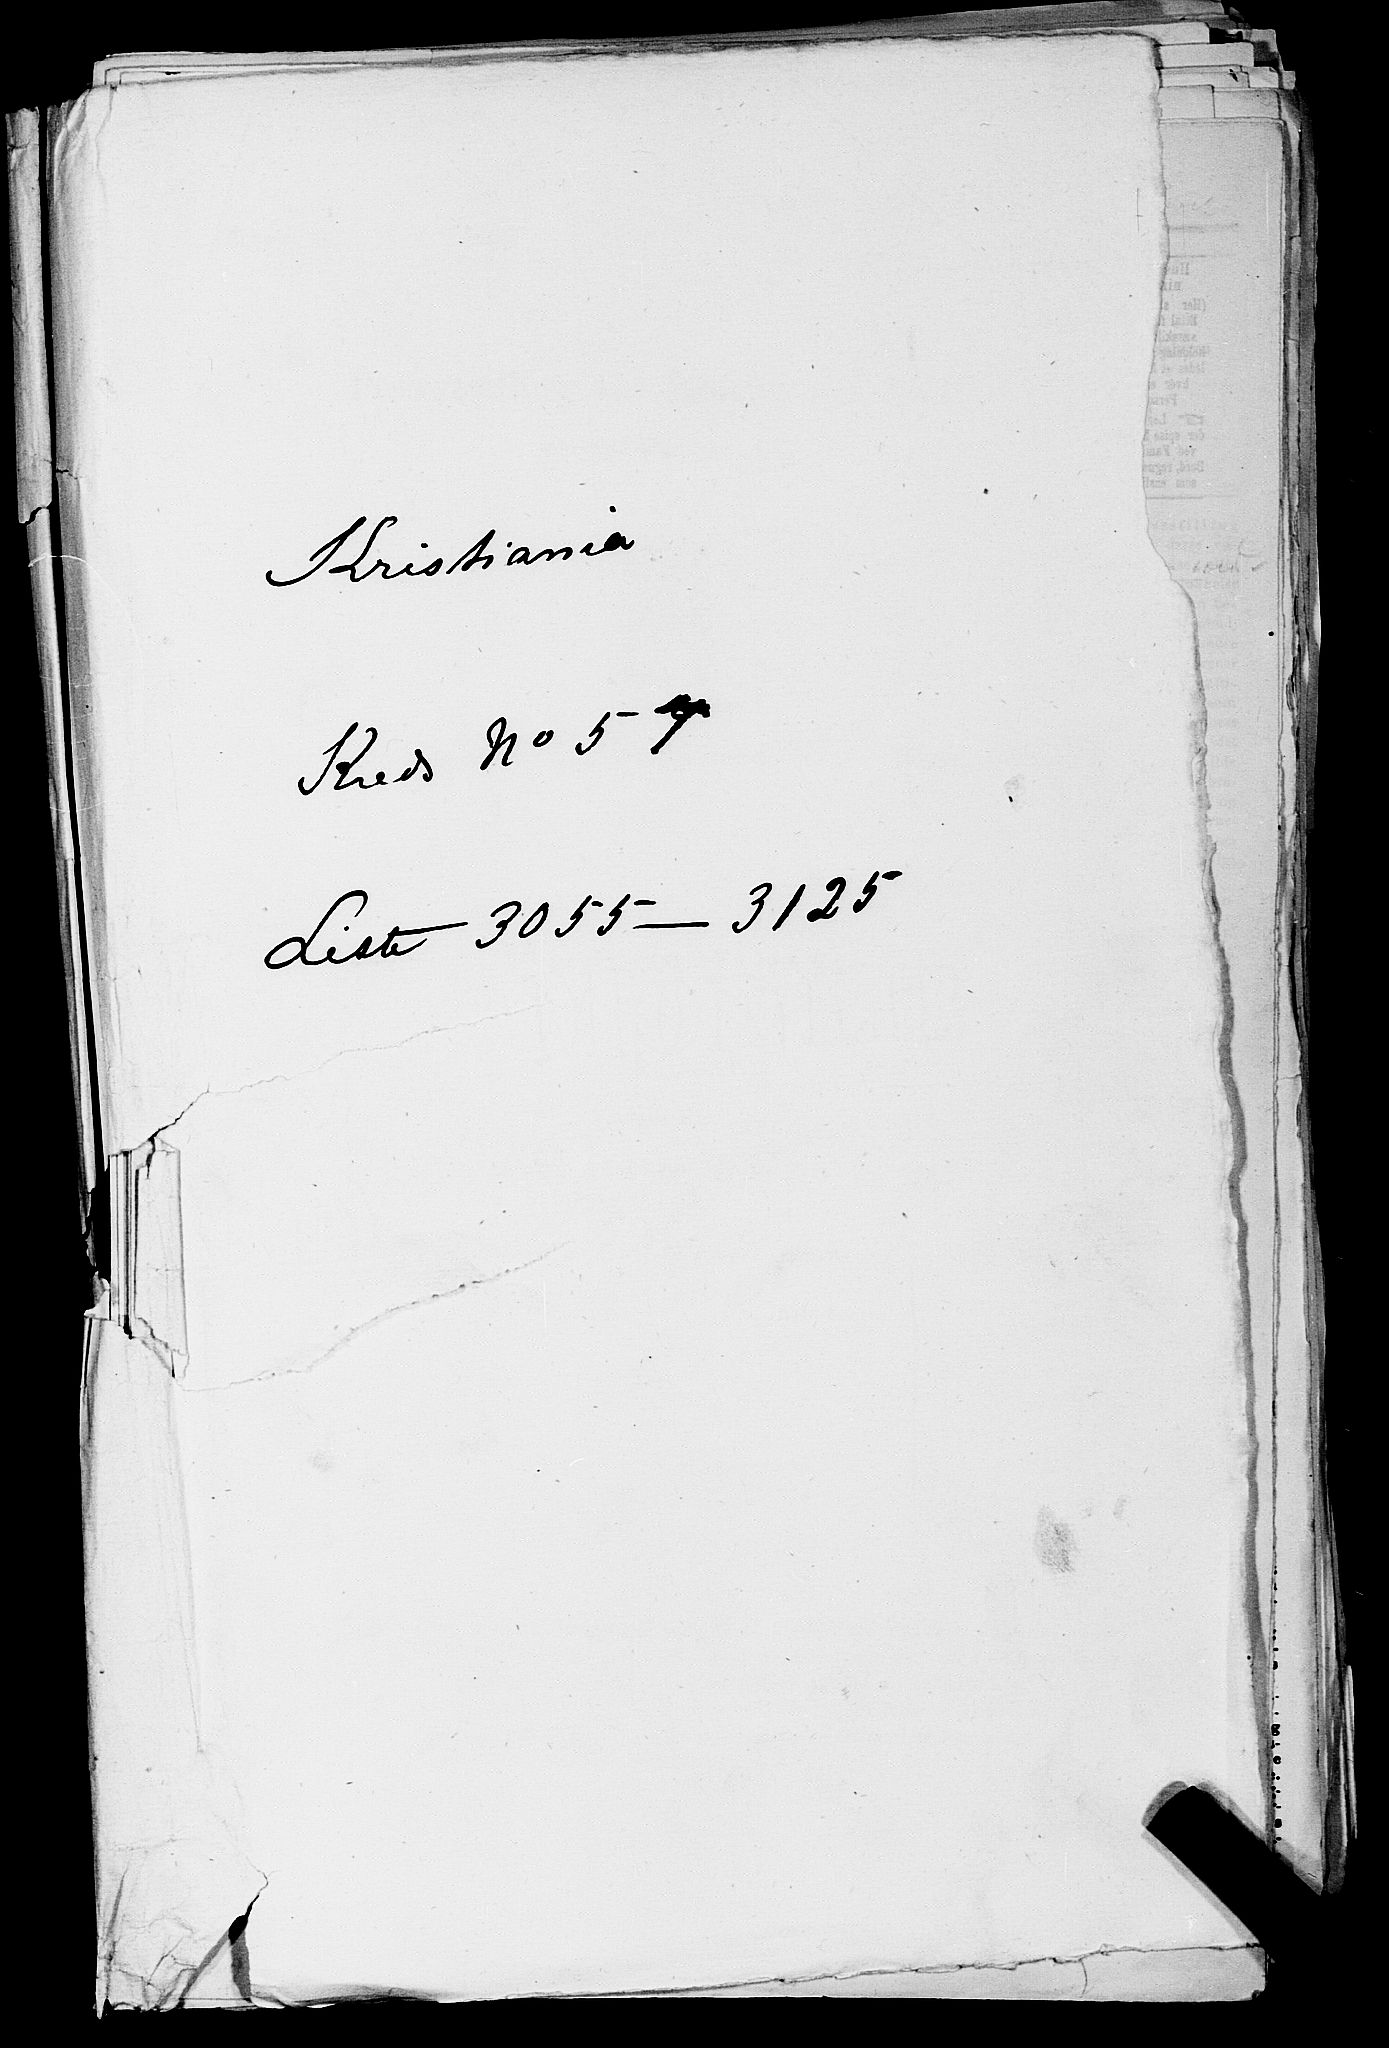 Kristiania
Kreds No 57
Liste 3055 — 3125